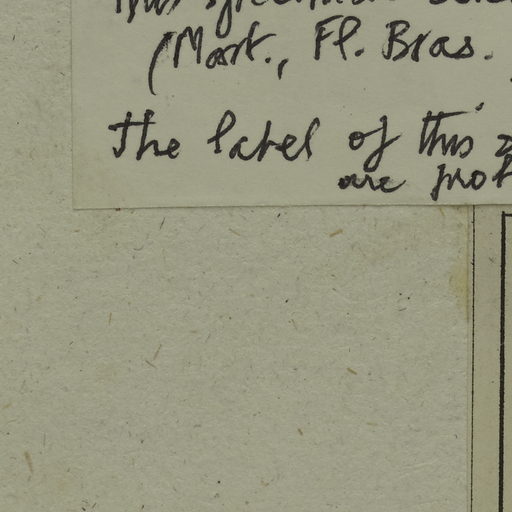 this specimen
(Mart., Fl. Bras.
the label of this
are